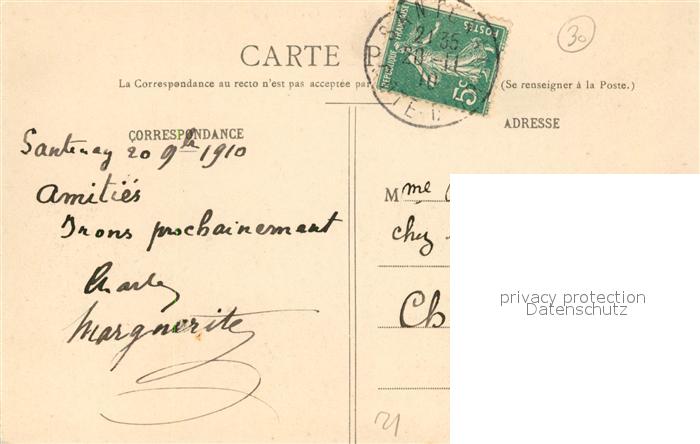 CARTE P
30
RÉPUBLIQUE FRANÇAISE
POSTES
5c
21 35
20 - 11
10
La Correspondance au recto n'est pas acceptée par
(Se renseigner à la Poste.)
CORRESPONDANCE
Santenay 20 9bre 1910
Amitiés
Irons prochainement
Charles
Marguerite
ADRESSE
Mme
chez
Ch
21
privacy protection
Datenschutz